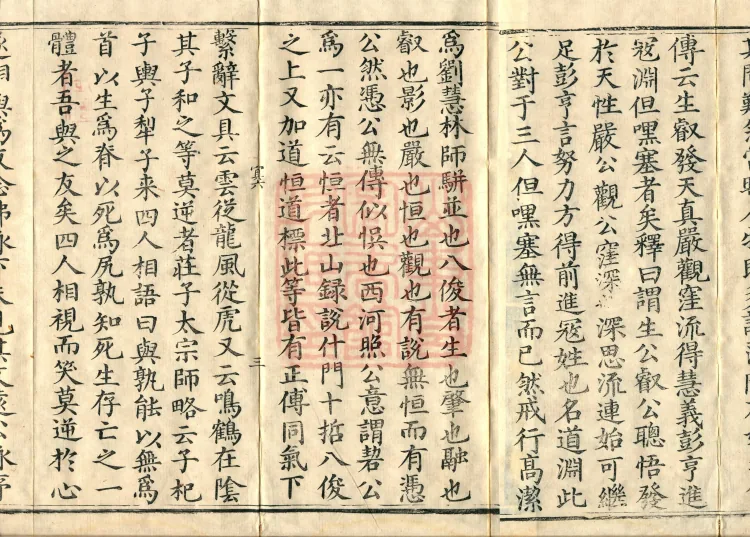 傳云生叡發天真嚴觀窪流得慧義彭亨進
寇淵但嘿塞者矣釋曰謂生公叡公聰悟發
於天性嚴公觀公窪深也深思流連始可繼
足彭亨言努力方得前進寇姓也名道淵此
公對于三人但嘿塞無言而已然戒行高潔
爲劉慧林師駢並也八俊者生也肇也融也
叡也影也嚴也恒也觀也有說無恒而有憑
公然憑公無傳似悞也西河照公意謂䂮公
爲一亦有云恒者北山録說什門十拈八俊
之上又加道恒道標此等皆有正傳同氣下
冥
三
繫辭文具云雲從龍風從虎又云鳴鶴在陰
其子和之等莫逆者莊子太宗師略云子杞
子輿子犁子来四人相語曰與孰能以無爲
首以生爲脊以死爲尻孰知死生存亡之一
體者吾與之友矣四人相視而笑莫逆於心